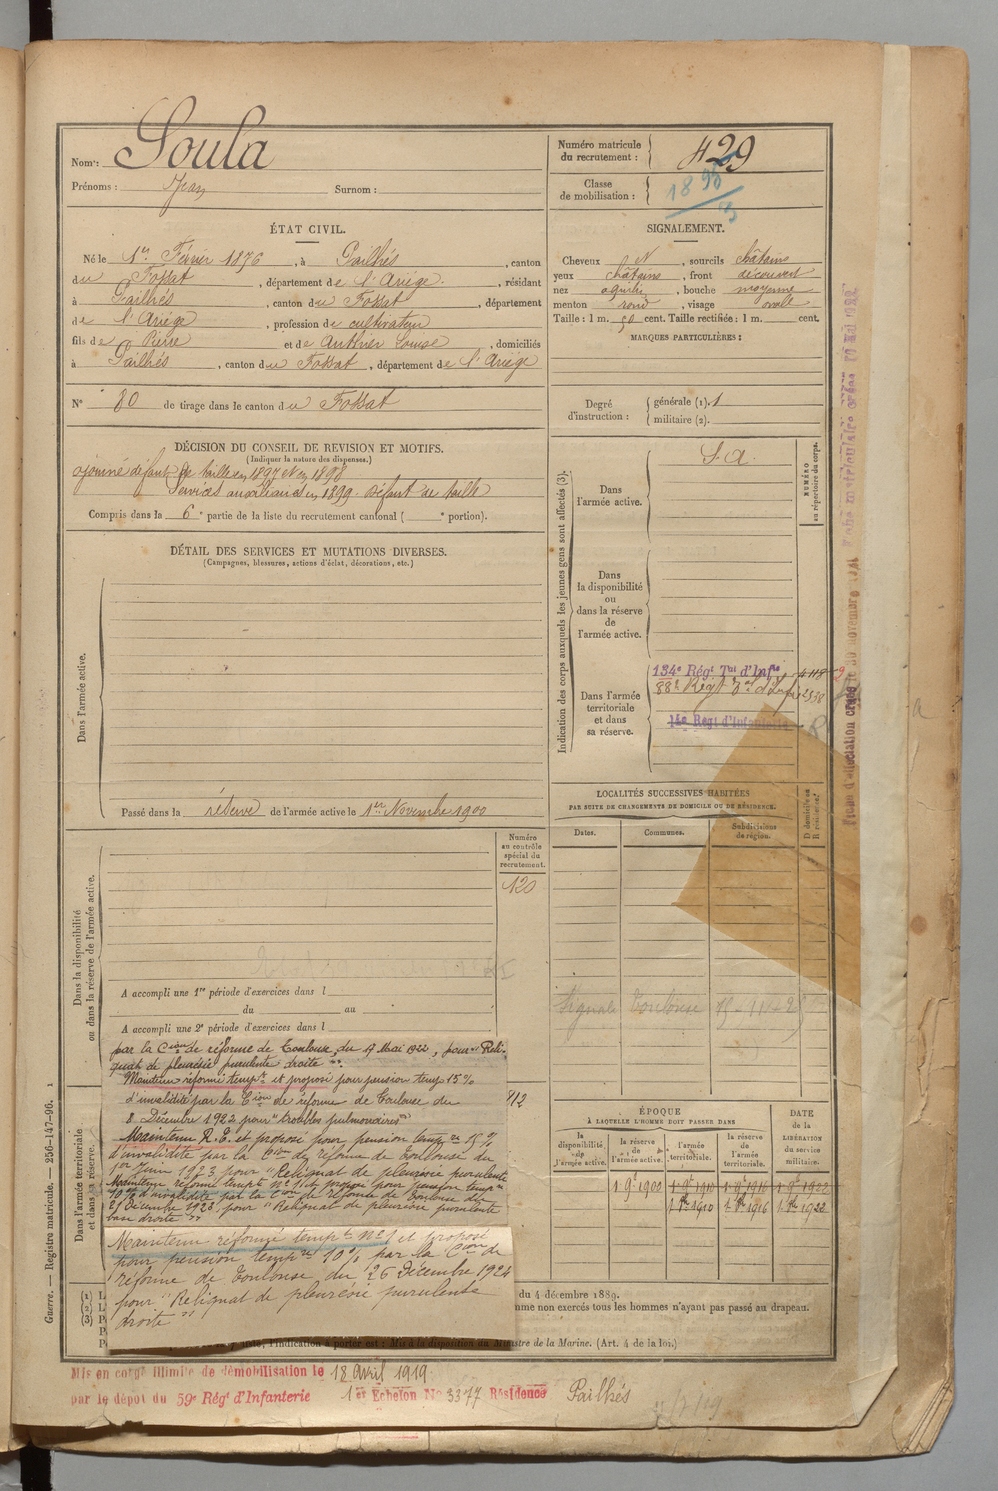 Nom : Soula
Prénoms : Jean Surnom :
Numéro matricule
du recrutement : 429
Classe
de mobilisation : 1895
3
ÉTAT CIVIL.
Né le 1er Février 1876, à Pailhés, canton
du Fossat, département de l'Ariége, résidant
à Pailhés, canton du Fossat, département
de l'Ariége, profession de cultivateur
fils de Pierre et de Authier Louise, domiciliés
à Pailhés, canton du Fossat, département de l'Ariége
N° 80 de tirage dans le canton du Fossat
SIGNALEMENT.
Cheveux N, sourcils châtains
yeux châtains, front découvert
nez aquilin, bouche moyenne
menton rond, visage ovale
Taille : 1 m. 50 cent. Taille rectifiée : 1 m. cent.
MARQUES PARTICULIÈRES :
Degré
d'instruction :
générale (1). 1
militaire (2).
DÉCISION DU CONSEIL DE REVISION ET MOTIFS.
(Indiquer la nature des dispenses.)
ajourné défaut de taille en 1897 et en 1898
Services auxiliaires en 1899. Défaut de taille
Compris dans la 6e partie de la liste du recrutement cantonal ( e portion).
DÉTAIL DES SERVICES ET MUTATIONS DIVERSES.
(Campagnes, blessures, actions d'éclat, décorations, etc.)
Dans l'armée active.
Passé dans la réserve de l'armée active le 1er Novembre 1900
Indication des corps auxquels les jeunes gens sont affectés (3).
NUMÉRO
au répertoire du corps.
Dans
l'armée active.
S. A.
Dans
la disponibilité
ou
dans la réserve
de
l'armée active.
Dans l'armée
territoriale
et dans
sa réserve.
134e Régt Tal d'Infie 4118
88e Régt Tal d'Infie 2538
14e Régt d'Infanterie
R
Fiche matriculaire créée 17 Mai 1922
LOCALITÉS SUCCESSIVES HABITÉES
PAR SUITE DE CHANGEMENTS DE DOMICILE OU DE RÉSIDENCE.
Dates. Communes. Subdivisions
de région.
D domicile ou
R résidence.
Signalé Toulouse
Dans la disponibilité
ou dans la réserve de l'armée active.
Numéro
au contrôle
spécial du
recrutement.
120
A accompli une 1re période d'exercices dans l
du au
A accompli une 2e période d'exercices dans l
par la Cion de réforme de Toulouse, du 17 Mai 1922, pour "Reli-
quat de pleurésie purulente droite".
Maintenu réformé tempre et proposé pour pension temp 15%
d'invalidité par la Cion de réforme de Toulouse du
8 Décembre 1922 pour "troubles pulmonaires"
Maintenu R. T. et proposé pour pension tempre 15%
d'invalidité par la Cion de réforme de Toulouse du
1er Juin 1923 pour "Reliquat de pleurésie purulente
Maintenu réformé tempre n° 1 et proposé pour pension tempre
10% d'invalidité par la Cion de réforme de Toulouse du
21 Décembre 1923, pour "Reliquat de pleurésie purulente
base droite"
Maintenu réformé tempre N° 1 et proposé
pour pension tempre 10% par la Cion de
réforme de Toulouse du 26 Décembre 1924
pour "Reliquat de pleurésie purulente
droite"
Dans l'armée territoriale
et dans sa réserve.
ÉPOQUE
À LAQUELLE L'HOMME DOIT PASSER DANS
la
disponibilité
de
l'armée active.
la réserve
de
l'armée active.
l'armée
territoriale.
la réserve
de
l'armée
territoriale.
DATE
de la
LIBÉRATION
du service
militaire.
1 9e 1900 1 9e 1910 1 9e 1916 1 9e 1922
1 8e 1910 1 8e 1916 1 8e 1922
du 4 décembre 1889.
mme non exercés tous les hommes n'ayant pas passé au drapeau.
l'indication à porter est : Mis à la disposition du Ministre de la Marine. (Art. 4 de la loi.)
Guerre. — Registre matricule. — 256-147-96. 1
Mis en congé illimité de démobilisation le 18 avril 1919.
par le dépot du 59e Régt d'Infanterie 1er Echelon No 3377 Résidence Pailhés